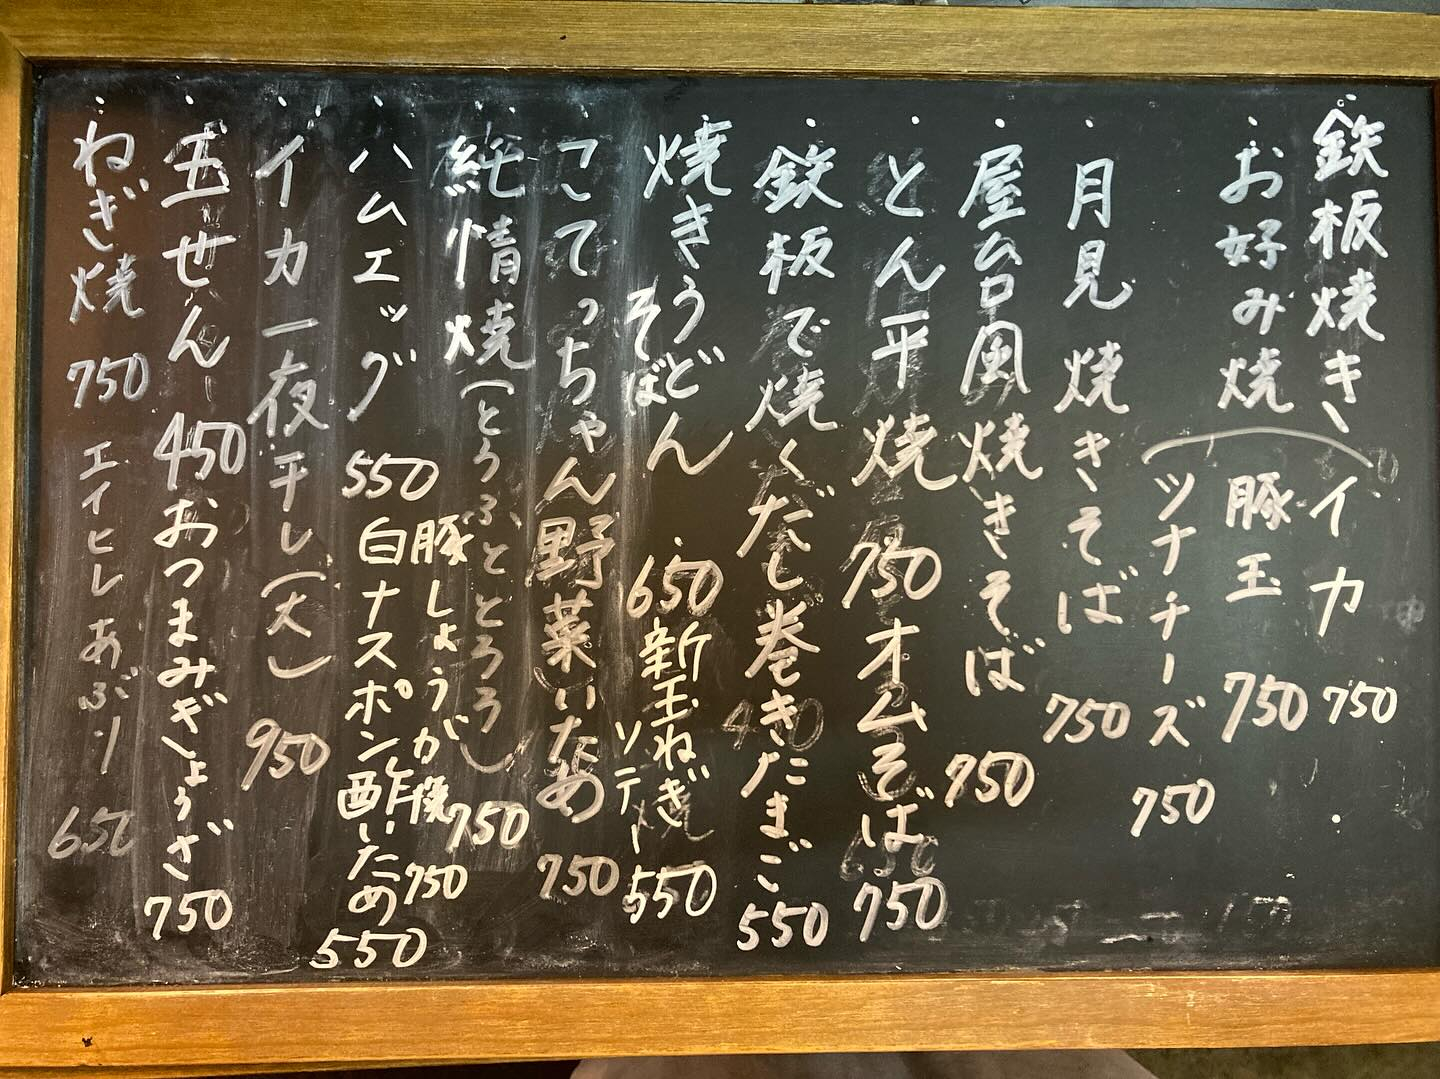 鉄板焼き、イカ 750
お好み焼 豚玉 750
ツナチーズ 750
月見焼きそば 750
屋台風焼きそば 750
とん平焼 750
オムそば 750
鉄板で焼くだし巻きたまご 550
焼きうどん そば 650
新玉ねぎソテー 550
こてっちゃん野菜いため 750
純情焼(とうふととろろ) 750
豚しょうが焼 750
ハムエッグ 550
白ナスポン酢いため 550
イカ一夜干し(大) 950
玉せん 450
おつまみぎょうざ 750
ねぎ焼 750
エイヒレあぶり 650